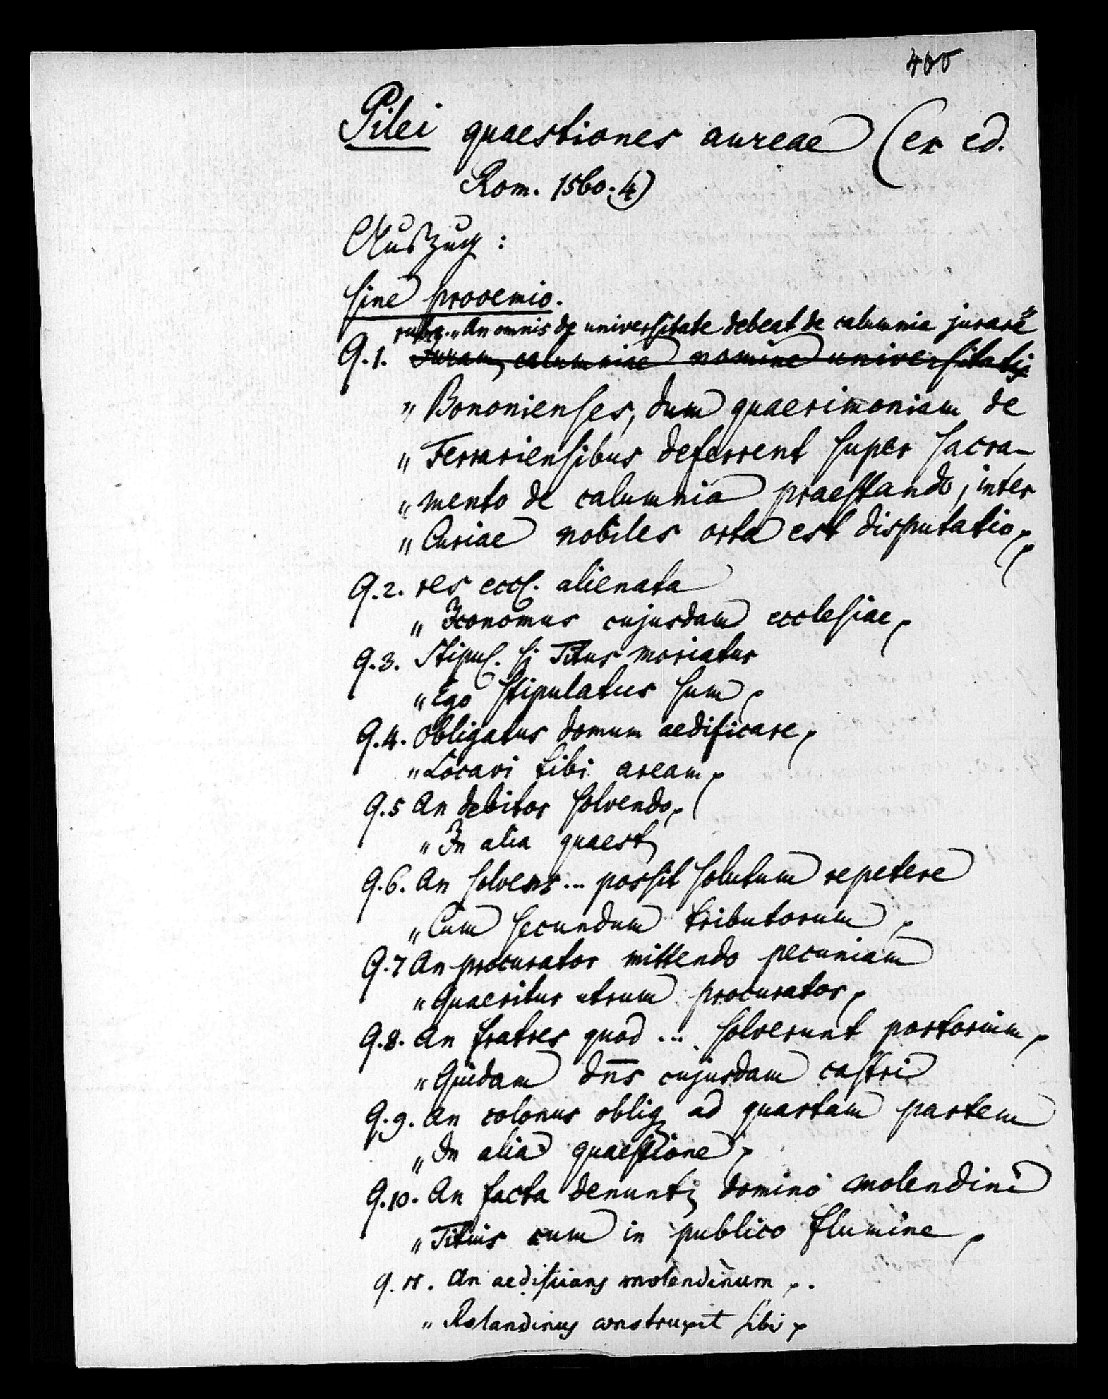 Pilei quaestiones aureae (ex ed.
Rom. 1560. 4)
Auszug:
sine prooemio.
rubr. "An omnis de universitate debeat de calumnia jurare"
Q. 1. Juram calumniae nomine universitatis
"Bononienses, dum quaerimoniam de
"Ferrariensibus deferrent super sacra-
"mento de calumnia praestando, inter
"Curiae nobiles orta est disputatio,
Q. 2. res eccl. alienata
"Iconomus cujusdam ecclesiae,
Q. 3. Stipul. si Titus moriatur
"Ego stipulatus sum,
Q. 4. obligatus domum aedificare,
"Locavi tibi aream,
Q. 5 An debitor solvendo,
"In alia quaest
Q. 6. An solvens ... possit solutum repetere
"Cum secundum tributorum,
Q. 7 An procurator mittendo pecuniam
"Quaeritur utrum procurator,
Q. 8. An fratres quod ... solverunt portorium,
"Quidam dns cujusdam castri
Q. 9. An colonus oblig ad quartam partem
"In alia quaestione,
Q. 10. An facta denunti domino molendini
"Titius cum in publico flumine,
Q. 11. An aedificans molendinum,.
"Rolandinus construxit sibi,